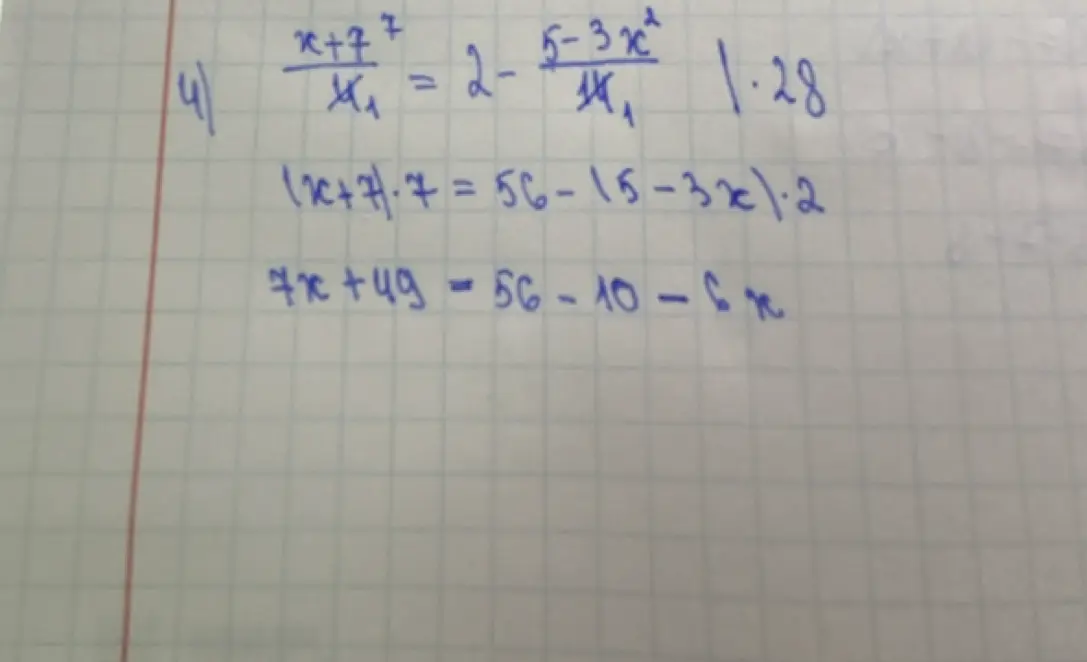 4) (x+7)⁷/4̶₁ = 2 - (5-3x)²/1̶4̶₁ | · 28
(x+7)·7 = 56 - (5 - 3x)·2
7x + 49 = 56 - 10 - 6x